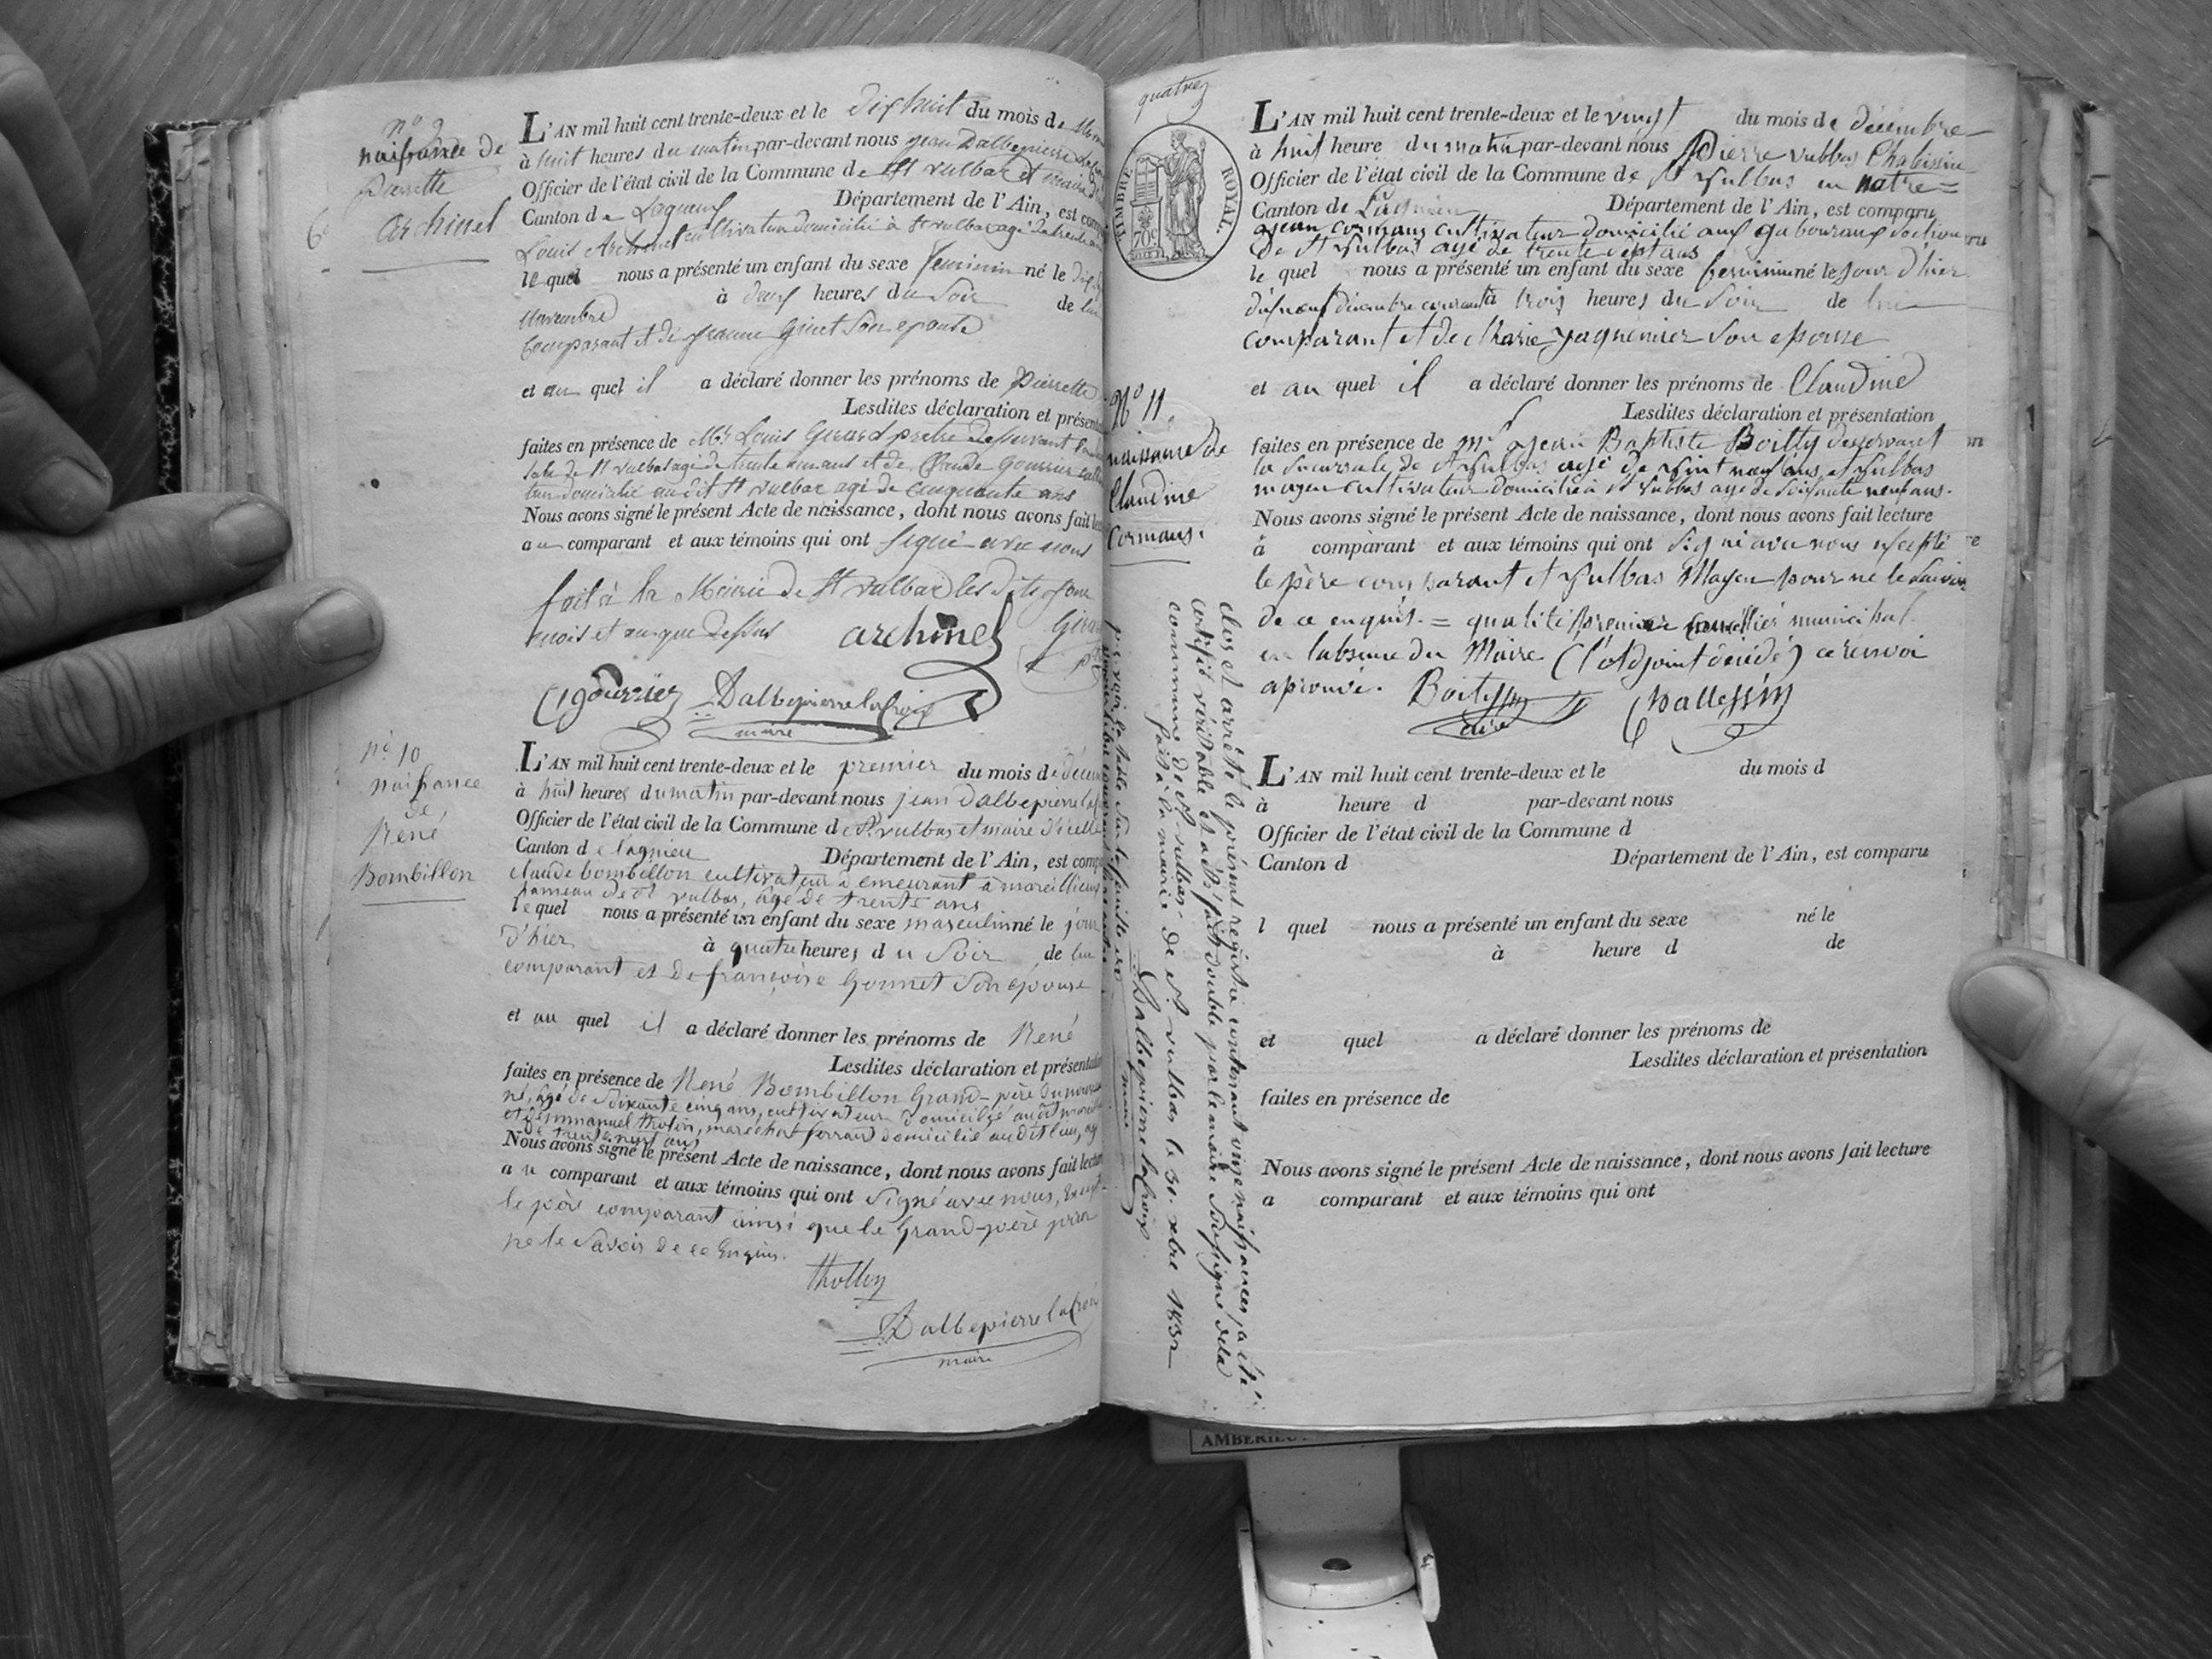 n° 9
naissance de
Pierrette
Archinet
L'AN mil huit cent trente-deux et le dix huit du mois de
à huit heures du matin par-devant nous jean Dalbepierre
Officier de l'état civil de la Commune de St vulbas et maire
Canton de Lagnieu Département de l'Ain, est comp
Louis Archinet cultivateur domicilié à St vulbas agé de trente
le quel nous a présenté un enfant du sexe feminin né le dix
novembre à deux heures du soir de lui
Comparant et de jeanne ginet son epouse
et au quel il a déclaré donner les prénoms de Pierrette
Lesdites déclaration et présent
faites en présence de Mr Louis Girard pretre desservant
de St vulbas agé de trente ans et de Claude gourrier
domicilié au dit St vulbas agé de cinquante ans
Nous avons signé le présent Acte de naissance, dont nous avons fait
au comparant et aux témoins qui ont signé avec nous
fait à la Mairie de St vulbas les dits jour
mois et an que dessus archinet
Cl gourrier Dalbepierre lafroix
maire
n° 10
naissance
de
René
Bombillon
L'AN mil huit cent trente-deux et le premier du mois de
à huit heures du matin par-devant nous jean dalbepierre
Officier de l'état civil de la Commune de St vulbas et maire d'icelle
Canton de lagnieu Département de l'Ain, est comp
claude bombillon cultivateur demeurant à marcillieux
hameau de St vulbas, âgé de trente ans
le quel nous a présenté un enfant du sexe masculin né le jour
d'hier à quatre heures du soir de lui
comparant et de françoise gonnet son épouse
et au quel il a déclaré donner les prénoms de René
Lesdites déclaration et présentati
faites en présence de René Bombillon Grand-père du nouveau
né, âgé de soixante cinq ans, cultivateur domicilié audit
et d'Emmanuel tholin, maréchal ferrant domicilié au dit lieu,
de trente neuf ans
Nous avons signé le présent Acte de naissance, dont nous avons fait lectu
au comparant et aux témoins qui ont signé avec nous, Excepté
le père comparant ainsi que le Grand-père pour
ne le savoir de ce Enquis.
thollin
Dalbepierre lafroix
maire
quatre
TIMBRE ROYAL.
70c
N° 11.
naissance de
Claudine
Cormans.
L'AN mil huit cent trente-deux et le vingt du mois de décembre
à huit heure du matin par-devant nous Pierre vulbas
Officier de l'état civil de la Commune de St Vulbas en
Canton de Lagnieu Département de l'Ain, est comparu
jean cormans cultivateur domicilié aux gabouraux section
de St Vulbas agé de trente sept ans
le quel nous a présenté un enfant du sexe feminin né le jour d'hier
dix neuf décembre courant à trois heures du soir de lui
comparant et de Marie jaquemier son epouse
et au quel il a déclaré donner les prénoms de Claudine
Lesdites déclaration et présentation
faites en présence de Mr jean Baptiste Boitty desservant
la succursale de St Vulbas agé de vint neuf ans, et Vulbas
moyen cultivateur domicilié à St Vulbas agé de soixante neuf ans.
Nous avons signé le présent Acte de naissance, dont nous avons fait lecture
à comparant et aux témoins qui ont signé avec nous excepté
le père comparant et Vulbas Moyen pour ne le savoir
de ce enquis. = qualité premier conseillier municipal
en labsence du Maire (l'adjoint décédé) ce renvoi
aprouvé.
L'AN mil huit cent trente-deux et le du mois d
à heure d par-devant nous
Officier de l'état civil de la Commune d
Canton d Département de l'Ain, est comparu
l quel nous a présenté un enfant du sexe né le
à heure d de
et quel a déclaré donner les prénoms de
Lesdites déclaration et présentation
faites en présence de
Nous avons signé le présent Acte de naissance, dont nous avons fait lecture
a comparant et aux témoins qui ont
clos et arrêté le présent registre contenant onze naissances, a été
certifié véritable et fait double par le maire soussigné de la
commune de St vulbas.
fait à la mairie de St vulbas le 30. xbre 1832
Dalbepierre lafroix
maire